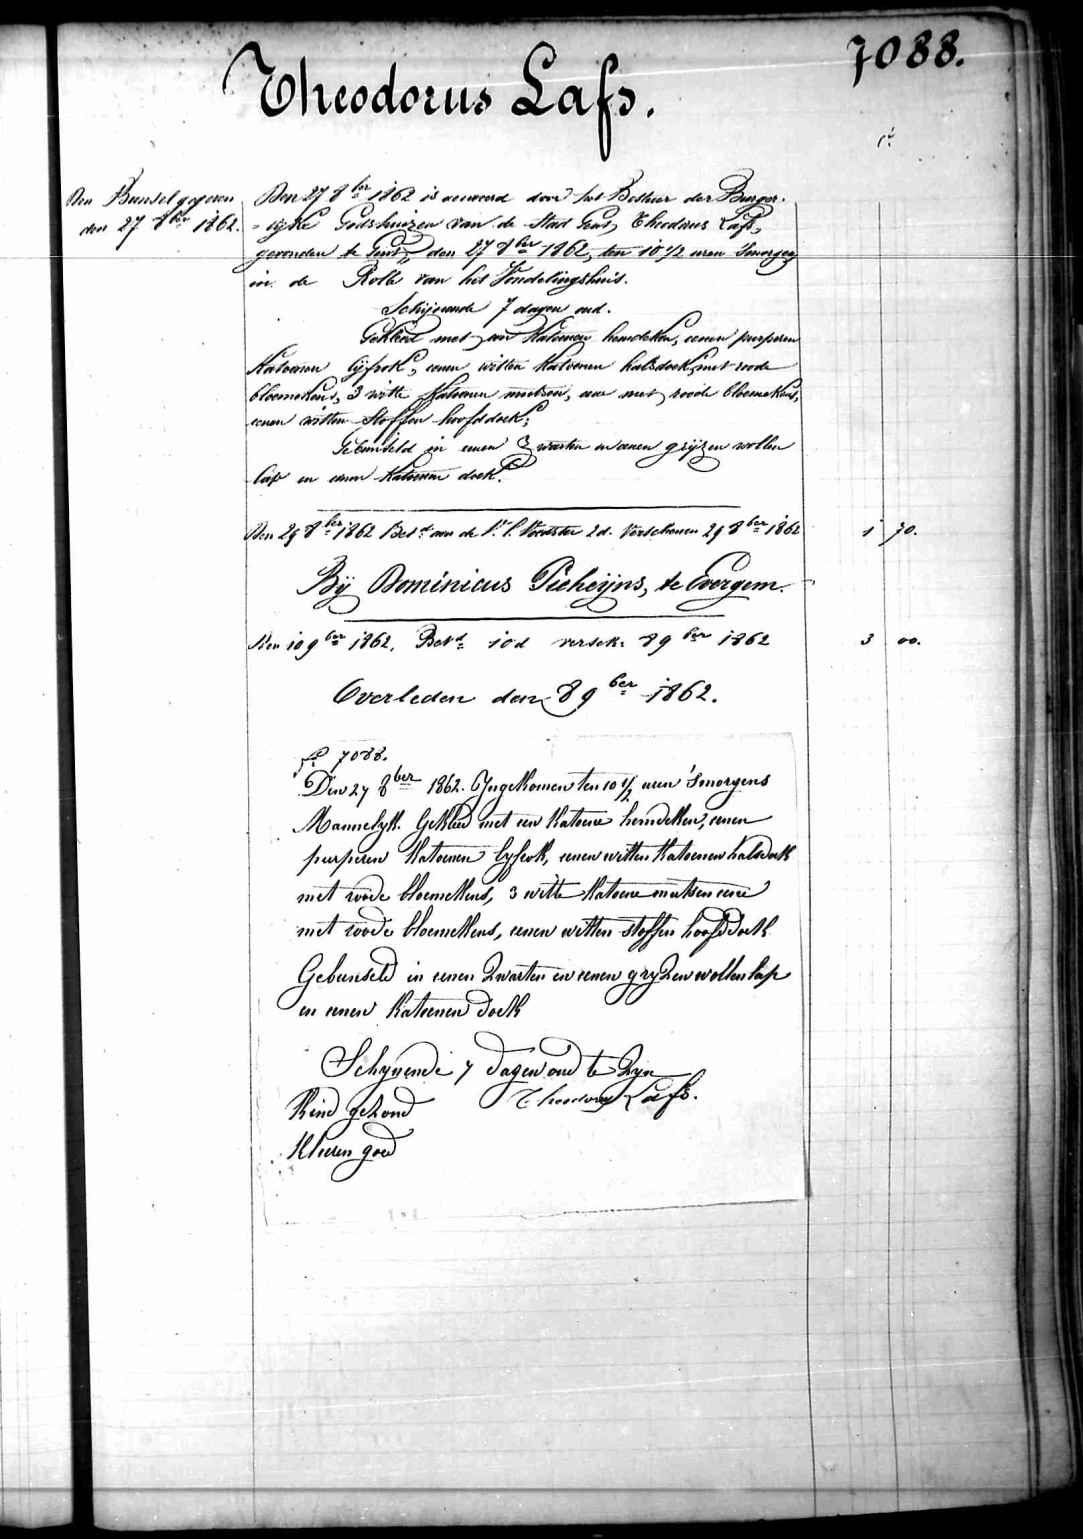 7088.
Theodorus Lafs.
fr.
Den Bunsel gegeven
den 27 8ber 1862.
Den 27 8ber 1862 is aenveerd door het Bestuer der Burger-
-lijke Godshuizen van de Stad Gent, Theodorus Lafs,
gevonden te Gent, den 27 8ber 1862, ten 10 1/2 uren Smorgens
in de Rolle van het Vondelingshuis.
Schijnende 7 dagen oud.
Gekleed met een Katoenen hemdeken, eenen purperen
Katoenen lijfrok, eenen witten Katoenen halsdoek met roode
bloemekens, 3 witte Katoenen mutsen, eene met roode bloemekens,
eenen witten stoffen hoofddoek;
Gebunseld in eenen zwarten en eenen grijzen wollen
lap en eenen Katoenen doek.
Den 29 8ber 1862 Betd aan de Voedster 2d. Verschenen 29 8ber 1862 1 70.
Bij Dominicus Pieheijns, te Evergem.
Den 10 9ber 1862. Betd 10d versch. 8 9ber 1862 3 00.
Overleden den 8 9ber 1862.
fo 7088.
Den 27 8ber 1862. Ingekomen ten 10 1/2 uren 'Smorgens
Mannelyk. Gekleed met een Katoene hemdeken, eenen
purperen Katoenen lyfrok, eenen witten Katoenen halsdoek
met roode bloemekens, 3 witte Katoene mutsen eene
met roode bloemekens, eenen witten stoffen hoofddoek
Gebunseld in eenen Zwarten en eenen gryzen wollen lap
en eenen Katoenen doek
Schynende 7 dagen oud te Zyn
Kind gezond Theodorus Lafs.
Kleeren goed